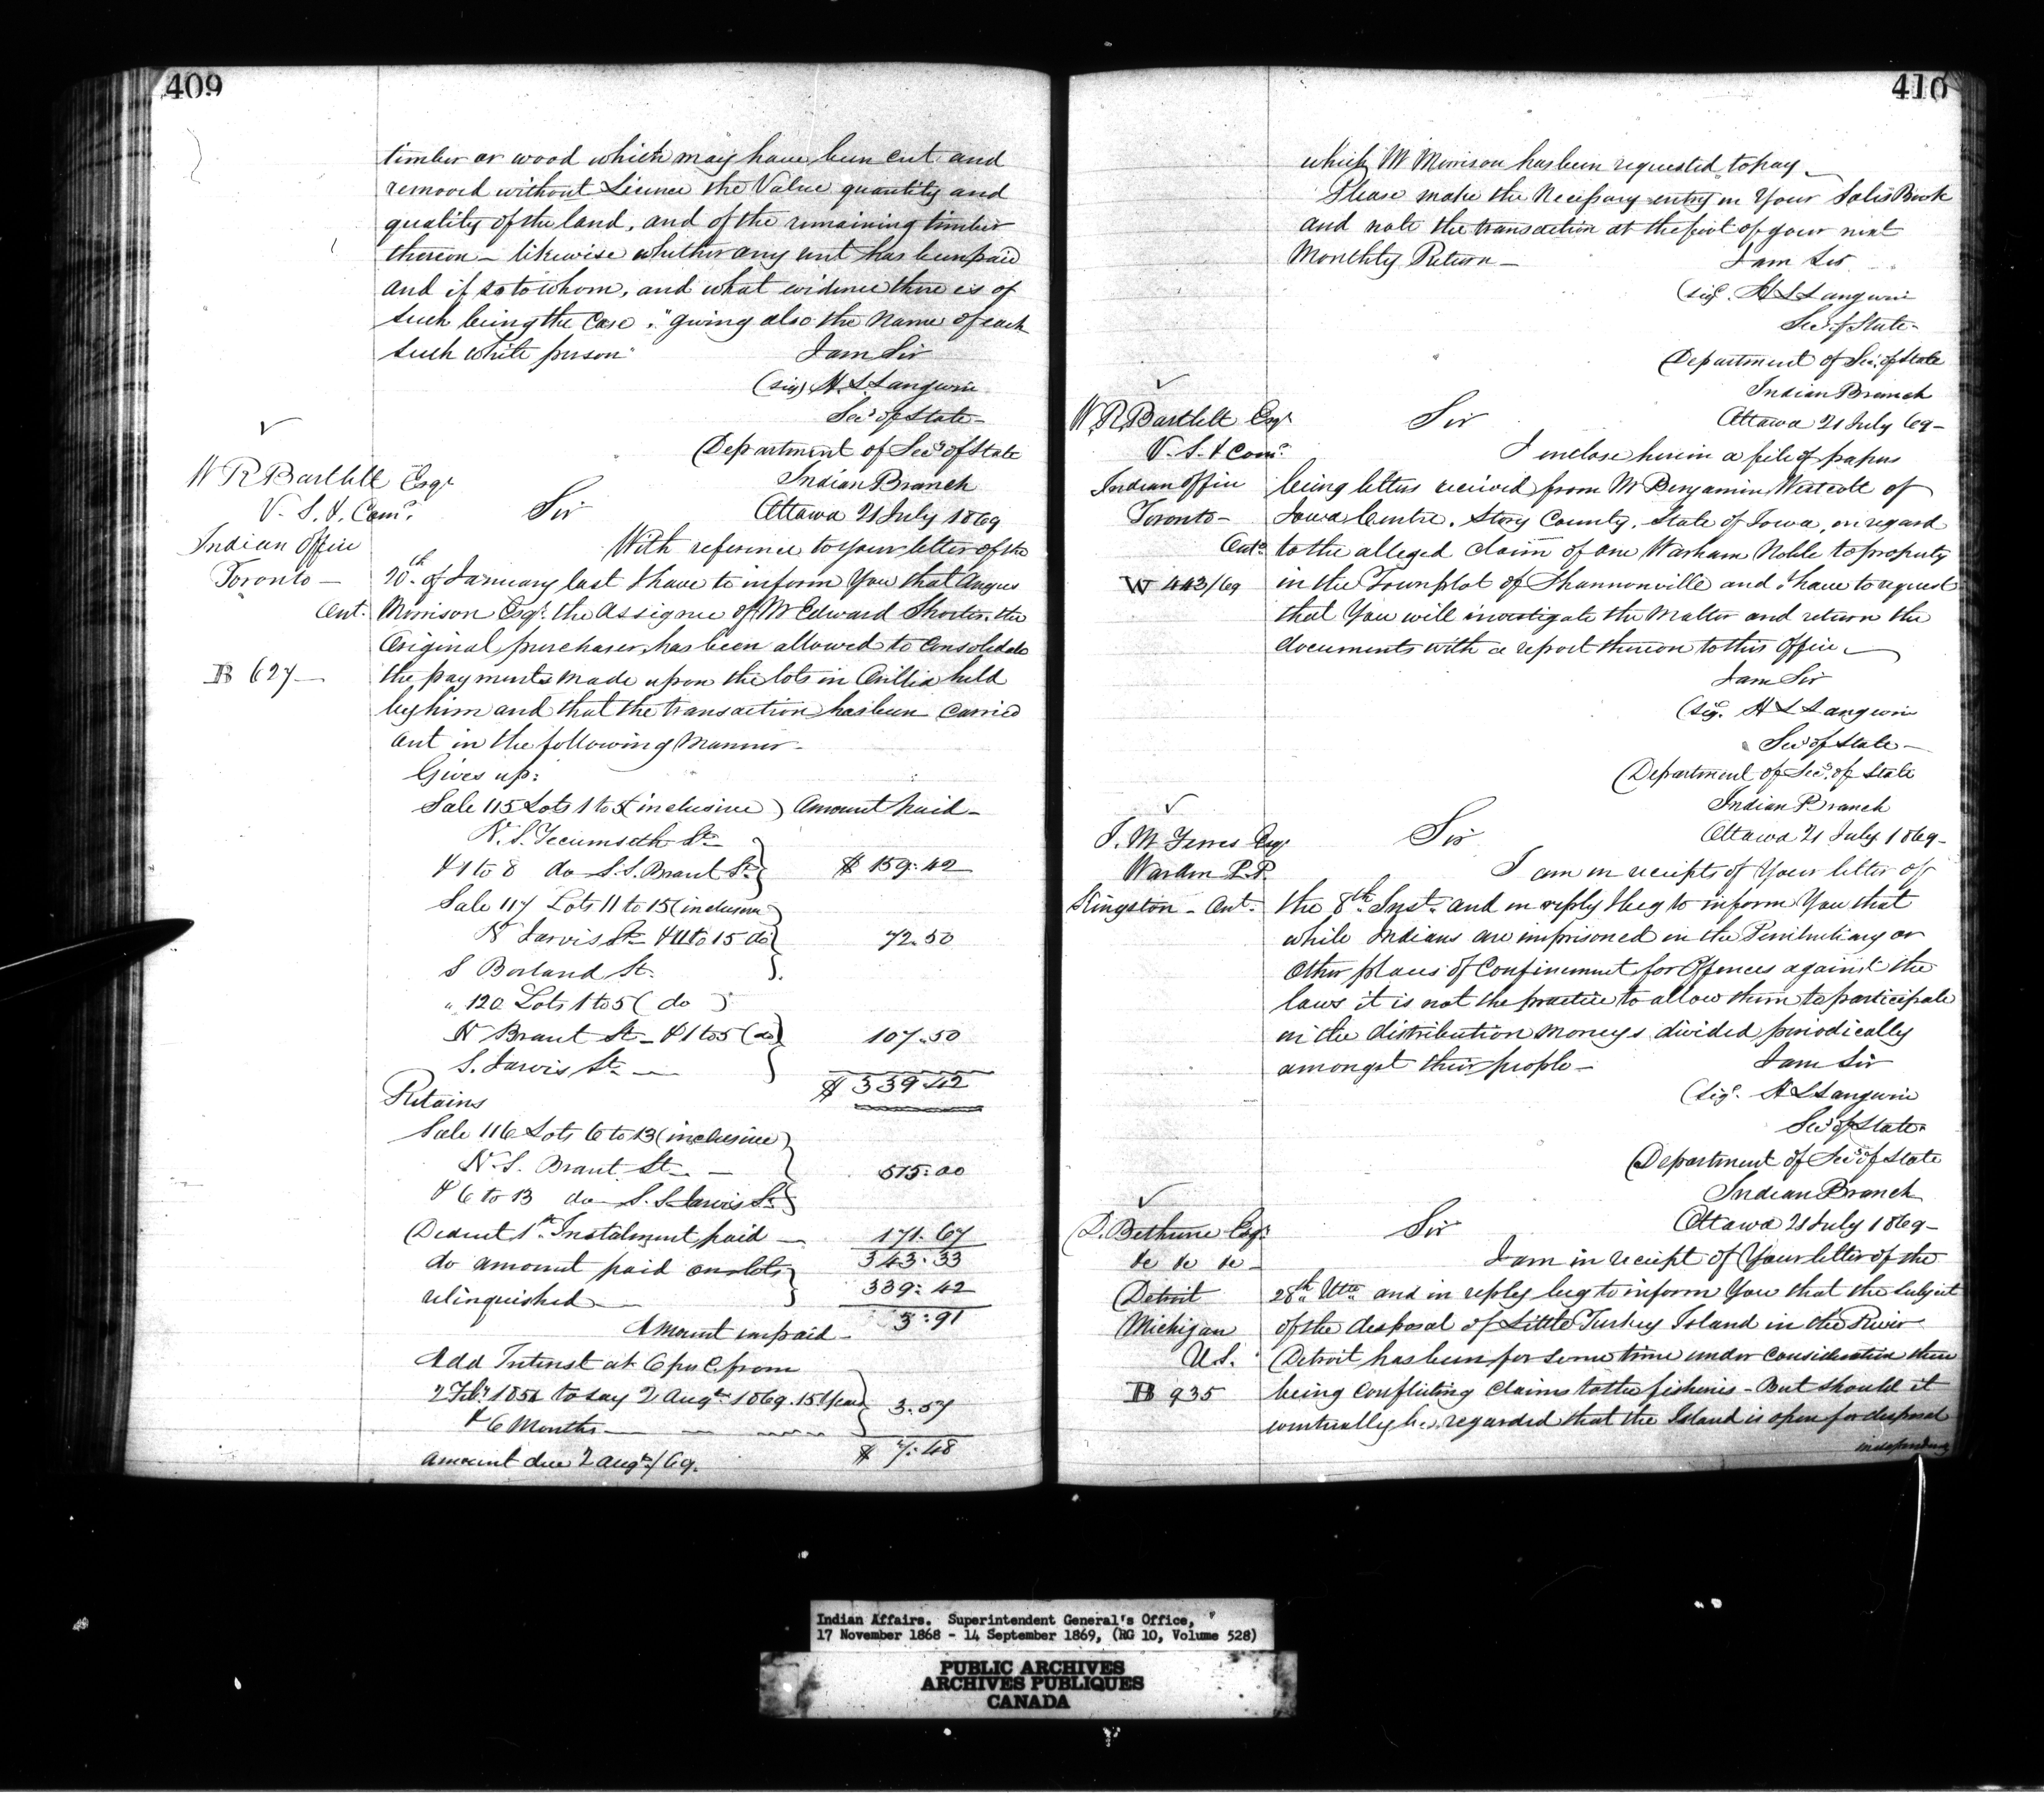 409
timber or wood which may have been cut and
removed without Licence the Value quantity and
quality of the land, and of the remaining timber
thereon - likewise whether any rent has been paid
and if so to whom, and what evidence there is of
such being the case," giving also the name of each
such white person"
I am Sir
(sig) H L Langevin
Secy of State -
Department of Secy of State
Indian Branch
Ottawa 21 July 1869
W R Bartlett Esqr
V. S. & Comr.
Indian Office
Toronto -
Ont.
B 627 -
Sir
With reference to your letter of the
20th of January last I have to inform You that Angus
Morrison Esqr. the Assignee of Mr Edward Shortis, the
Original purchaser, has been allowed to Consolidate
the payments made upon the lots in Orillia held
by him and that the transaction has been Carried
out in the following Manner -
Gives up:
Sale 115 Lots 1 to 5 (inclusive) Amount Paid -
N. S. Tecumseth St -
& 1 to 8 do S. S. Brant St. $ 159.42
Sale 117 Lots 11 to 15 (inclusive
N Jarvis St & 11 to 15 do 72.50
S Borland St.
" 120 Lots 1 to 5 ( do )
N Brant St - & 1 to 5 (do) 107.50
S. Jarvis St. -
$ 339.42
Retains
Sale 116 Lots 6 to 13 (inclusive)
N. S. Brant St. - 515.00
& 6 to 13 do S. S. Jarvis St.
Deduct 1st Instalment paid - 171.67
343.33
do amount paid on lots
relinquished - 339.42
Amount unpaid - 3.91
Add Interest at 6 per C. from
2 Feby 1854 to say 2 Augt 1869. 15 years 3.57
& 6 Months -
Amount due 2 Augt/69. $ 7.48
410
which Mr Morrison has been requested to pay -
Please make the Necessary entry in Your Sales Book
and note the transaction at the foot of your next
Monthly Return -
I am Sir
(sigd. H L Langevin
Secy of State -
Department of Secy. of State
Indian Branch
Ottawa 21 July 69 -
W. R. Bartlett Esqr
V. S. & Comr.
Indian Office
Toronto -
Onto
W 443/69
Sir
I enclose herein a file of papers
being letters received from Mr Benjamin Westcott of
Iowa Centre, Story County, State of Iowa, in regard
to the alleged claim of one Warham Noble to property
in the Townplot of Shannonville and I have to request
that You will investigate the Matter and return the
documents with a report thereon to this Office -
I am Sir
(sig. H L Langevin
Secy of State -
Department of Secy. of State
Indian Branch
Ottawa 21 July 1869 -
J. M Ferres Esqr
Warden P. P.
Kingston - Ont.
Sir
I am in receipt of Your letter of
the 8th Inst. and in reply I beg to inform You that
while Indians are imprisoned in the Penitentiary or
Other places of Confinement for Offences against the
laws it is not the practice to allow them to participate
in the distribution moneys divided periodically
amongst their people -
I am Sir
(sigd. H L Langevin
Secy of State.
Department of Secy of State
Indian Branch
Ottawa 21 July 1869 -
D. Bethune Esqr.
&c &c &c -
Detroit
Michigan
U.S.
B 935
Sir
I am in receipt of Your letter of the
28th Ulto and in reply beg to inform You that the subject
of the disposal of Little Turkey Island in the River
Detroit has been for some time under Consideration there
being Conflicting Claims to the fisheries - But should it
eventually be regarded that the Island is open for disposal
independently
Indian Affairs. Superintendent General's Office,
17 November 1868 - 14 September 1869, (RG 10, Volume 528)
PUBLIC ARCHIVES
ARCHIVES PUBLIQUES
CANADA